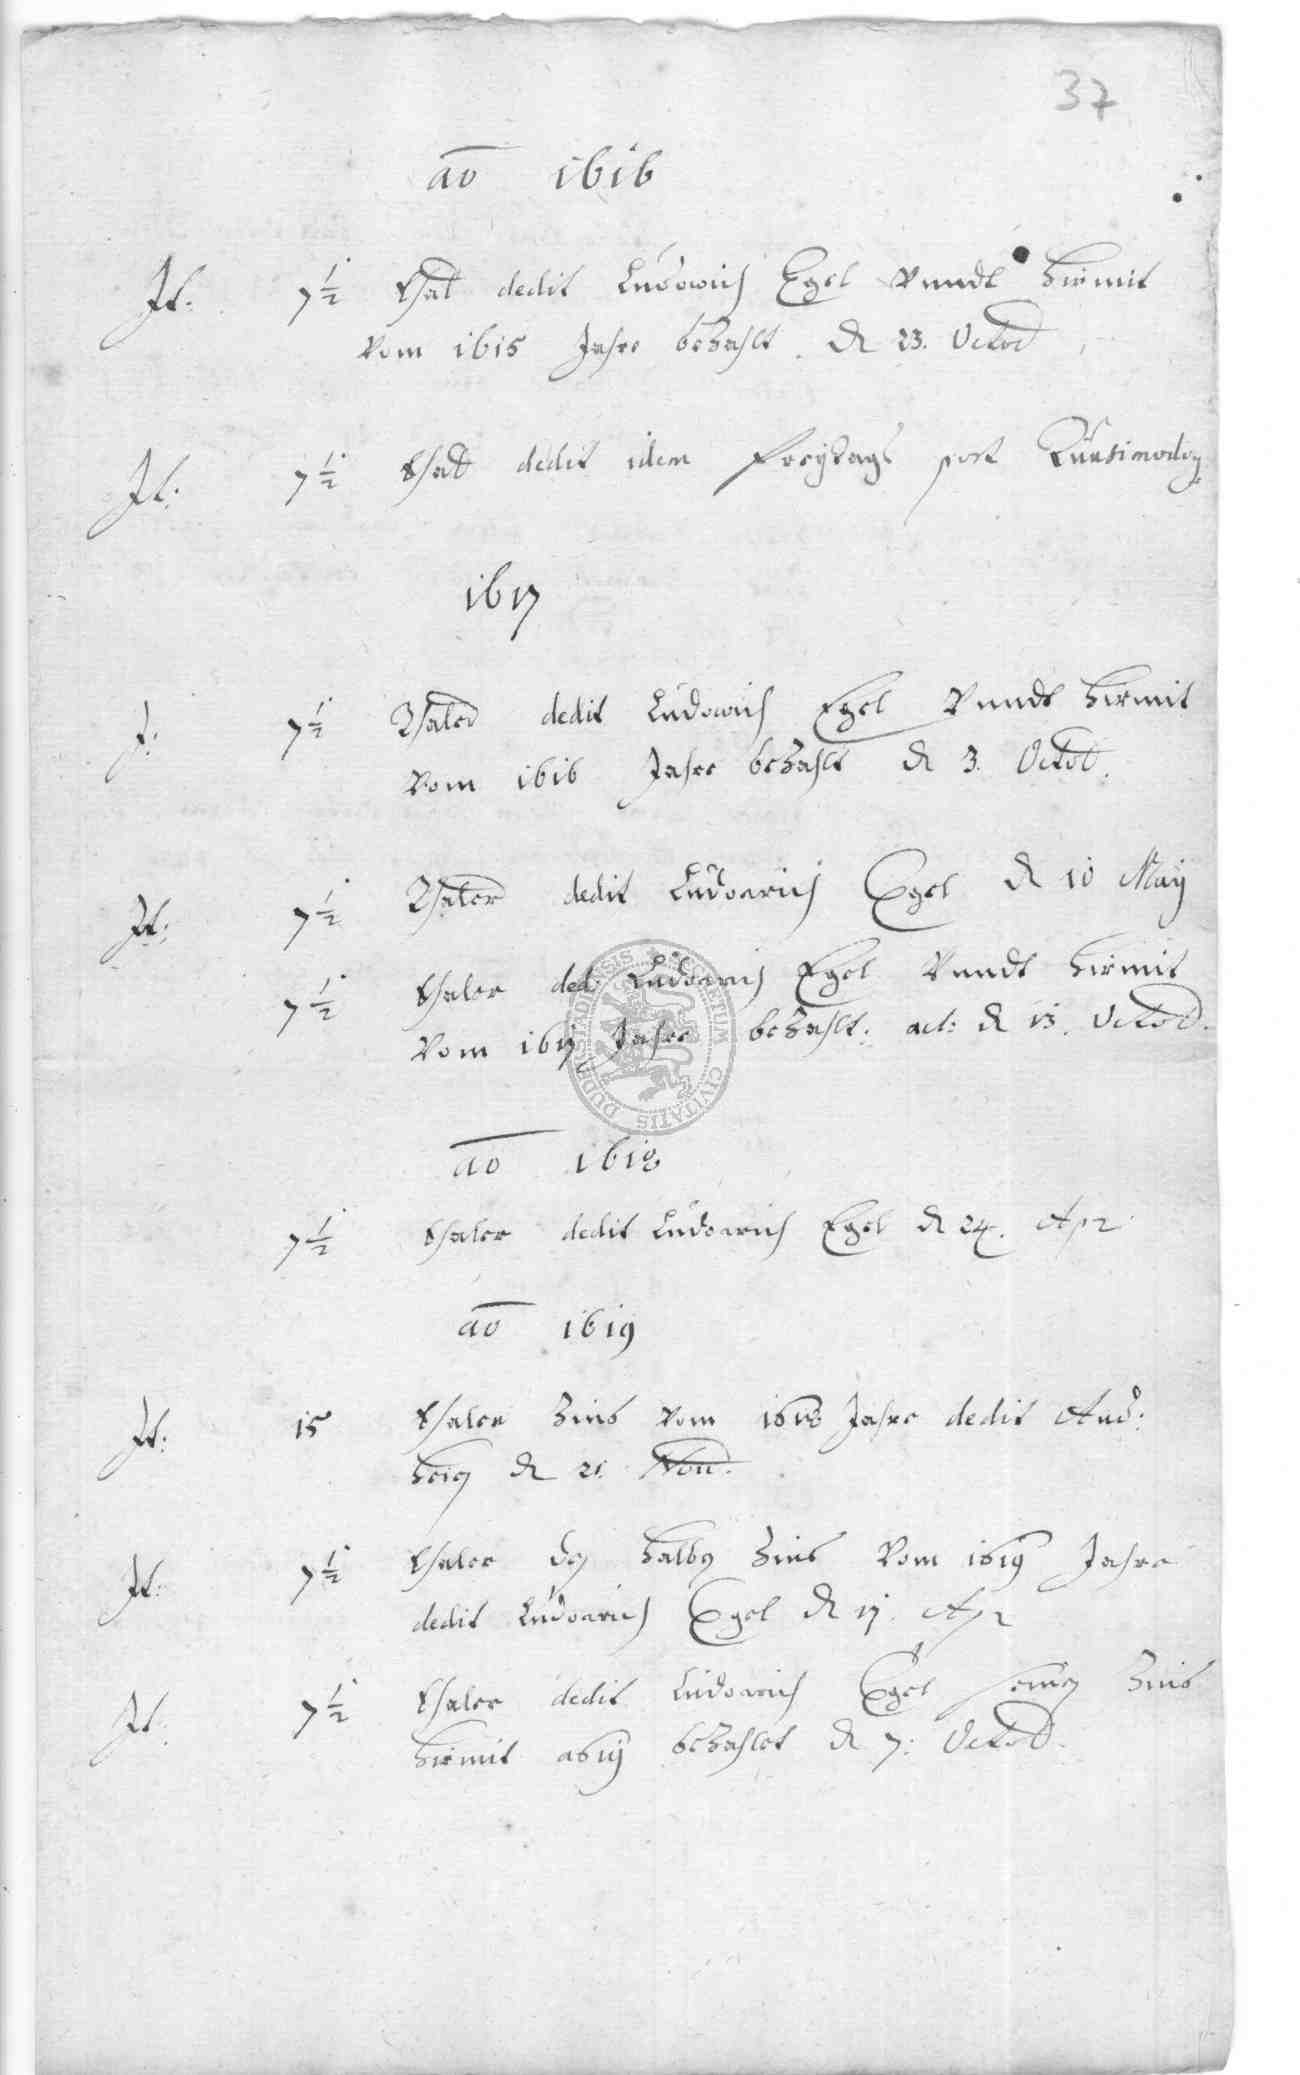 37
ao 1616
It: 7 1/2 thal dedit Ludowich Egel vnndt hirmit
vom 1615 Jahre bezahlt. d 23. Octob
It: 7 1/2 thal dedit idem freytags post Quasimodog.
1617
I: 7 1/2 Thaler dedit Ludowich Egel vnndt hirmit
vom 1616 Jahre bezahlt d 3. Octob.
It: 7 1/2 Thaler dedit Ludowich Egel d 10 Maij
7 1/2 thaler ded: Ludowich Egel vnndt hirmit
vom 1617 Jahre bezahlt: act: d 13. Octob.
SECRETUM CIVITATIS DUDERSTADENSIS
ao 1618
7 1/2 thaler dedit Ludowich Egel d 24. Apr
ao 1619
It: 15 thaler Zins vom 1618 Jahre dedit And:
d 21. Nou:
It: 7 1/2 thaler halben Zins vom 1619 Jahre
dedit Ludowich Egel d 17. Apr
It. 7 1/2 thaler dedit Ludowich Egel seinen Zins
hirmit bezahlet d 7: Octob.